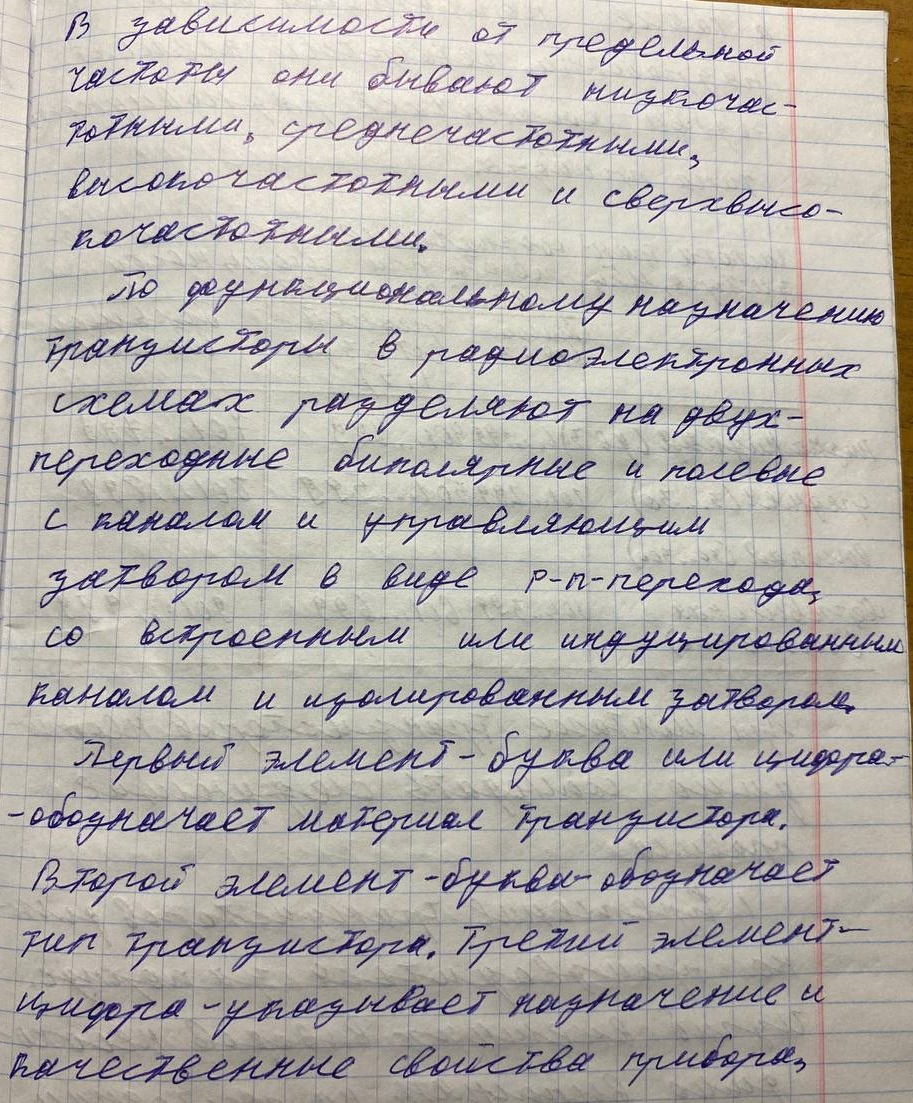 В зависимости от предельной
частоты они бывают низкочас-
тотными, среднечастотными,
высокочастотными и сверхвысо-
кочастотными.
По функциональному назначению
транзисторы в радиоэлектронных
схемах разделяют на двух-
переходные биполярные и полевые
с каналом и управляющим
затвором в виде p-n-перехода,
со встроенным или индуцированным
каналом и изолированным затвором.
Первый элемент-буква или цифра-
-обозначает материал транзистора.
Второй элемент-буква-обозначает
тип транзистора. Третий элемент-
цифра-указывает назначение и
качественные свойства прибора,